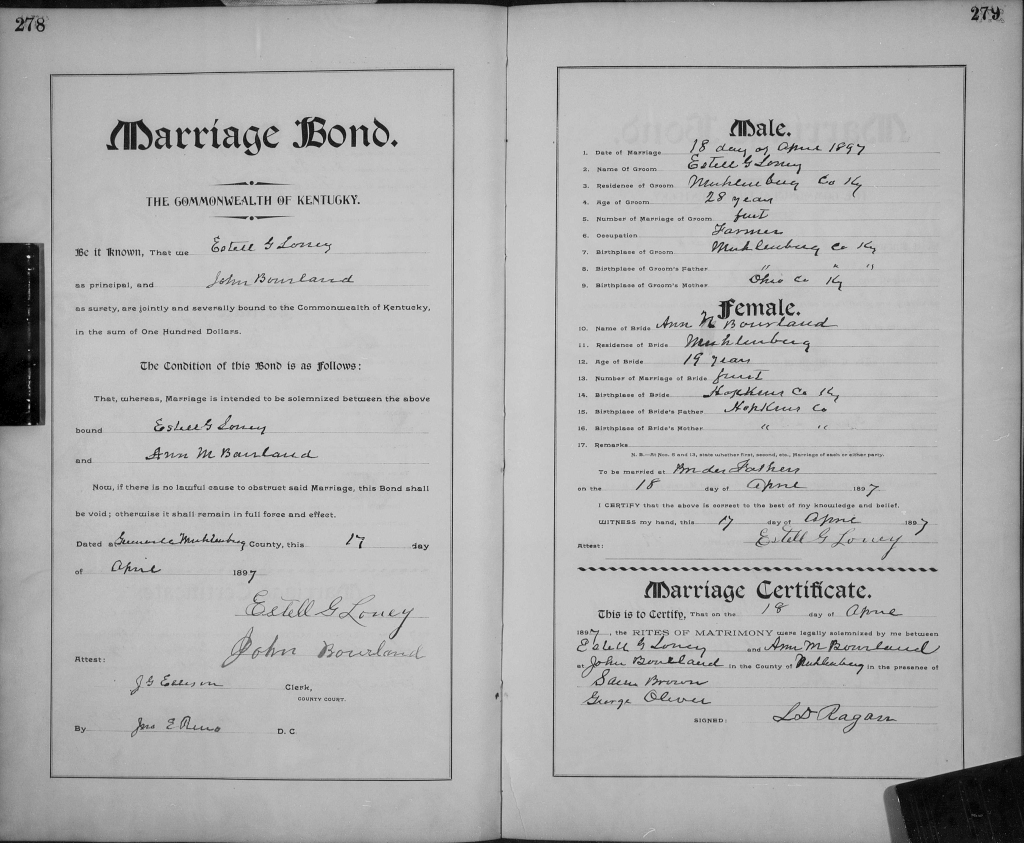 278
Marriage Bond.
THE COMMONWEALTH OF KENTUCKY.
Be it Known, That we Estell G Loney
as principal, and John Bourland
as surety, are jointly and severally bound to the Commonwealth of Kentucky,
in the sum of One Hundred Dollars.
The Condition of this Bond is as Follows:
That, whereas, Marriage is intended to be solemnized between the above
bound Estell G Loney
and Ann M Bourland
Now, if there is no lawful cause to obstruct said Marriage, this Bond shall
be void; otherwise it shall remain in full force and effect.
Dated at Greenville Muhlenburg County, this 17 day
of April 1897
Estell G Loney
John Bourland
Attest:
J G Ellison Clerk,
COUNTY COURT.
By Jno E Reno D. C.
279
Male.
1. Date of Marriage 18 day of April 1897
2. Name Of Groom Estell G Loney
3. Residence of Groom Muhlenburg Co Ky
4. Age of Groom 28 years
5. Number of Marriage of Groom first
6. Occupation Farmer
7. Birthplace of Groom Muhlenburg Co Ky
8. Birthplace of Groom's Father " " "
9. Birthplace of Groom's Mother Ohio Co Ky
Female.
10. Name of Bride Ann M Bourland
11. Residence of Bride Muhlenburg
12. Age of Bride 19 years
13. Number of Marriage of Bride first
14. Birthplace of Bride Hopkins Co Ky
15. Birthplace of Bride's Father Hopkins Co
16. Birthplace of Bride's Mother " "
17. Remarks
N. B.—At Nos. 5 and 13, state whether first, second, etc., Marriage of each or either party.
To be married at Brides Fathers
on the 18 day of April 1897
I CERTIFY that the above is correct to the best of my knowledge and belief.
WITNESS my hand, this 17 day of April 1897
Attest: Estell G Loney
Marriage Certificate.
This is to Certify, That on the 18 day of April
1897, the RITES OF MATRIMONY were legally solemnized by me between
Estell G Loney and Ann M Bourland
at John Bourland in the County of Muhlenburg in the presence of
Sam Brown
George Oliver
SIGNED: L D Ragan